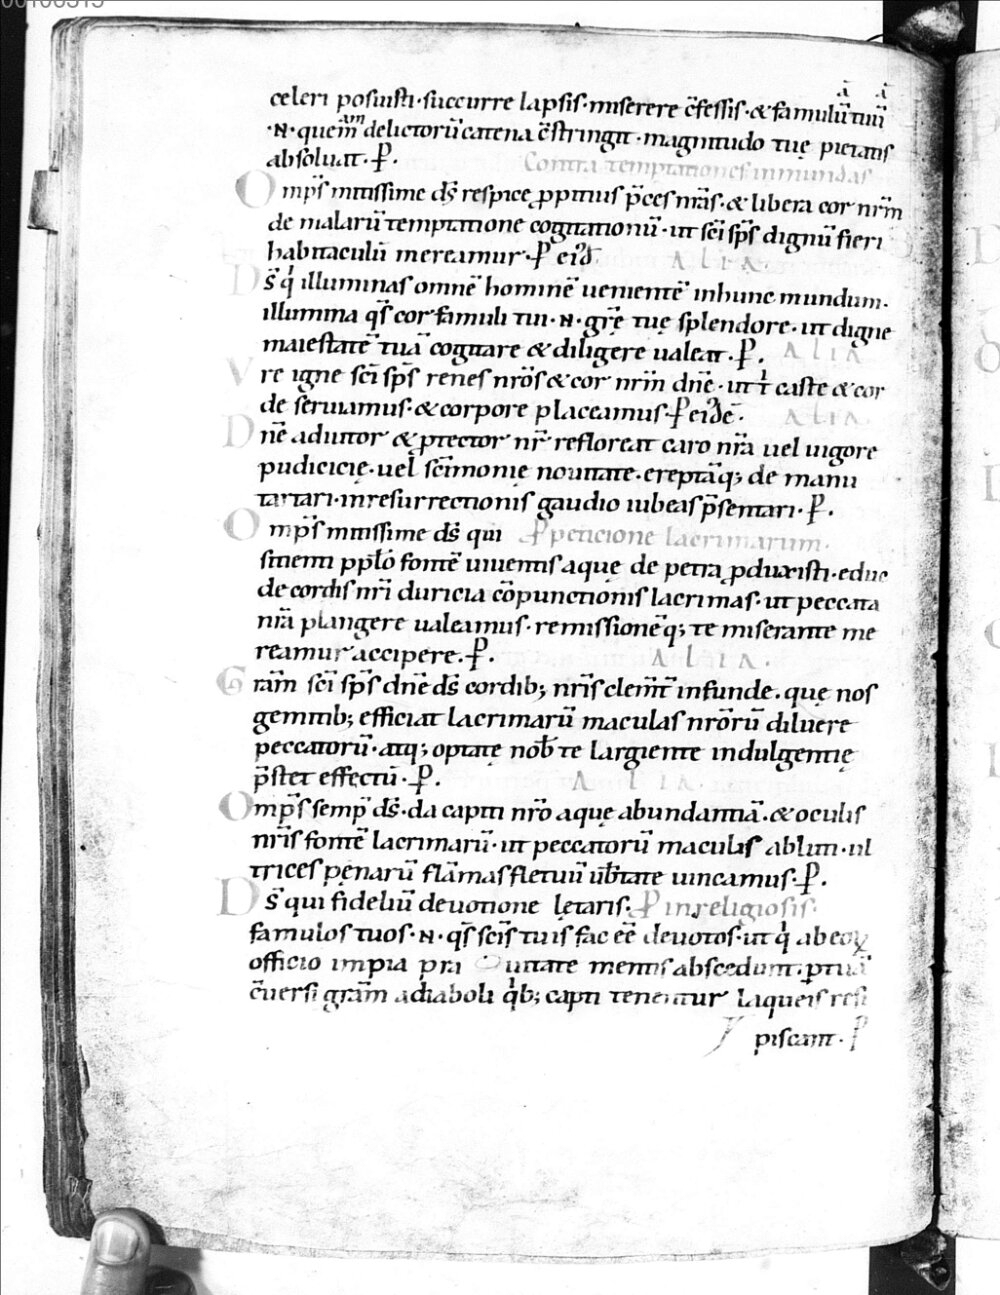 00100515
celeri posuisti·succurre lapsis·miserere c̄fessis·&famulū tuū
·N·quem̄ delictorū catena c̄stringit·magnitudo tuę pietatis
absoluat·P̄·
Contra temptationes inmundas
Omp̄s mitissime ds̄ respice ꝓpitius p̄ces nr̄as·& libera cor nr̄m
de malarū temptatione cogitationū·ut sc̄i sp̄s dignū fieri
habitaculū mereamur·P̄ eiꝰd ALIA·
Ds̄ q̍ illuminas omnē hominē uenientē inhunc mundum·
illumina qs̄ cor famuli tui·N·gr̄ę tuę splendore·ut digne
maiestatē tuā cogitare &diligere ualeat·P̄· ALIA
Vre igne sc̄i sp̄s renes nrōs &cor nr̄m dn̄e·ut t̍ caste &cor
de seruiamus·&corpore placeamus·P̄ eiꝰdē· ALIA·
Dn̄e adiutor &ꝓtector nr̄ refloreat caro nr̄a uel uigore
pudicicię·uel sc̄imonię nouitate·ereptāq; de manu
tartari·inresurrectionis gaudio iubeas p̄sentari·P̄·
Omp̄s mitissime ds̄ qui P̄ peticione lacrimarum·
sitienti ppl̄o fontē uiuentis aquę de petra ꝓduxisti·educ
de cordis nr̄i duricia cōpunctionis lacrimas·ut peccata
nr̄a plangere ualeamus·remissionēq; te miserante me
reamur accipere·P̄· ALIA·
Gram̄ sc̄i sp̄s dn̄e ds̄ cordib; nr̄is clem̄t infunde·quę nos
gemitib; efficiat lacrimarū maculas nrōrū diluere
peccatorū·atq; optatę nob̄ te largiente indulgentię
p̄stet effectū·P̄· ALIA·
Omp̄s semp̄ ds̄·da capiti nrō aquę abundantiā·&oculis
nr̄is fontē lacrimarū·ut peccatorū maculis abluti·ul
trices pęnarū flāmas fletuū ub̄tate uincamus·P̄·
Ds̄ qui fideliū deuotione lętaris· P̄ inreligiosis·
famulos tuos·N·qs̄ sc̄is tuis fac eē deuotos·ut q̍ ab eoꝝ
officio impia pra uitate mentis abscedunt·ꝑ tuā
c̄uersi gram̄ adiaboli q̍b; capti tenentur laqueis resi
piscant·P̄